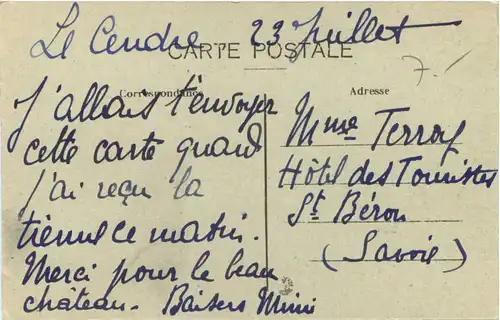 Le Cendre 23 Juillet
CARTE POSTALE
7.-
Correspondance
J'allais t'envoyer
cette carte quand
j'ai reçu la
tienne ce matin.
Merci pour le beau
château. Baisers Mimi
Adresse
Mme Terroy
Hôtel des Touristes
St Béron
(Savoie)